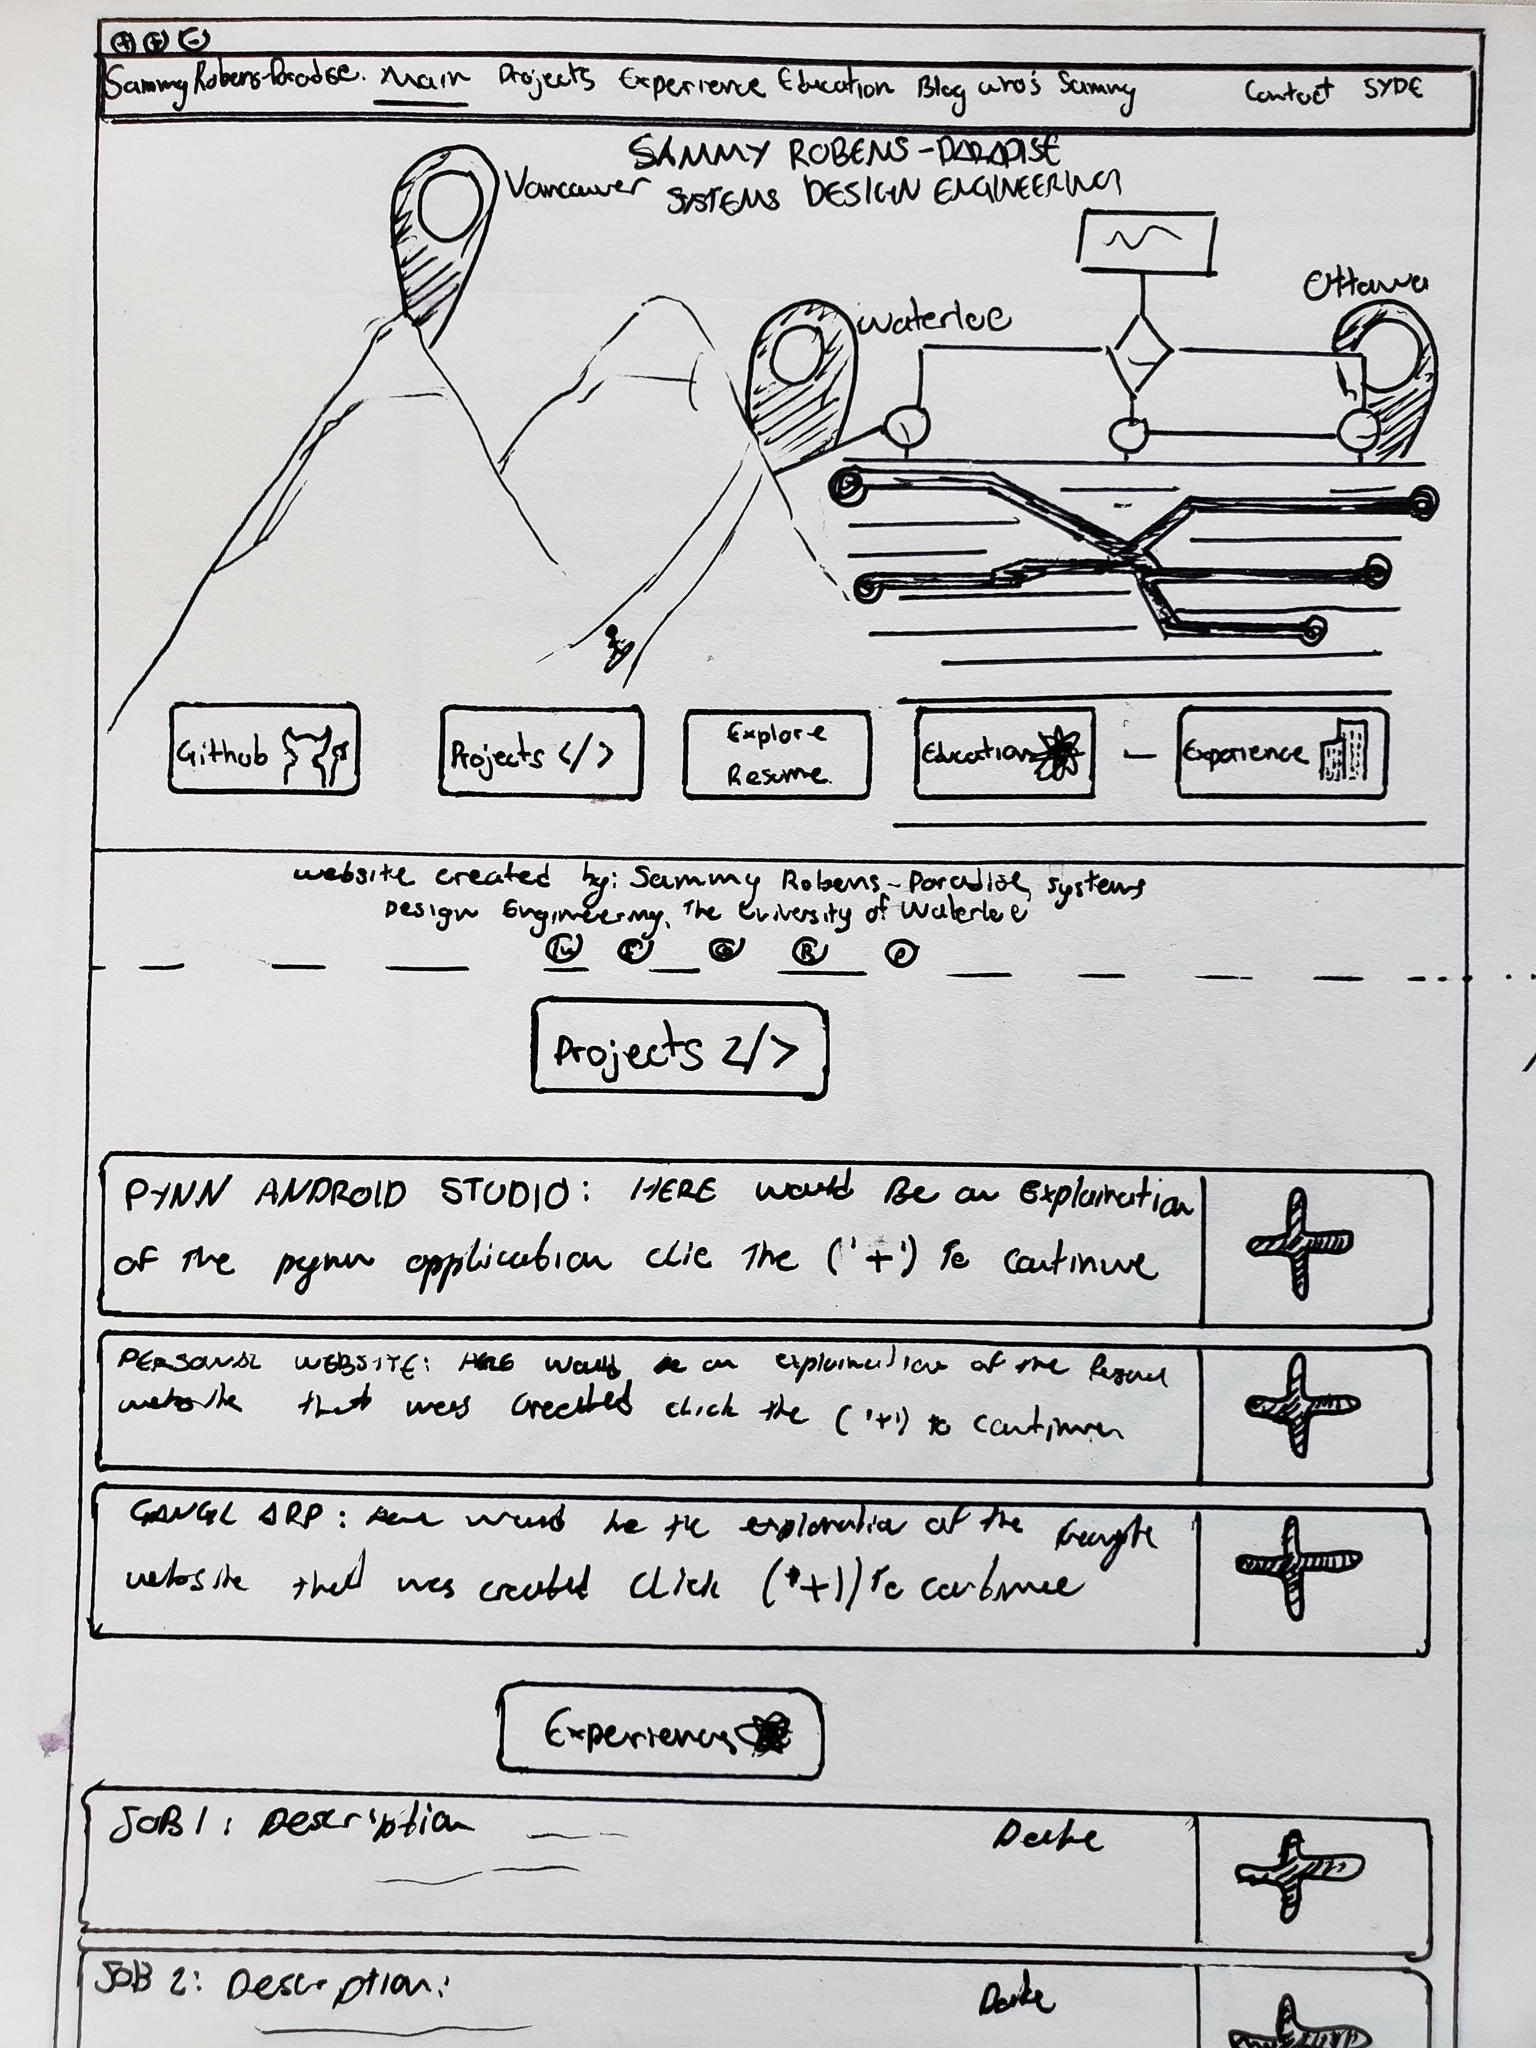 Sammy Robens-Paradise. Main Projects Experience Education Blog who's Sammy Contact SYDE
SAMMY ROBENS-PARADISE
SYSTEMS DESIGN ENGINEERING
Vancouver
Ottawa
Waterloo
Github Projects </> Explore Resume. Education Experience
website created by: Sammy Robens-Paradise, systems
Design Engineering, The University of Waterloo
Projects </>
PYNN ANDROID STUDIO: HERE would Be an Explaination
of the pynn application clic The ('+') To continue
PERSONAL WEBSITE: HERE would be an explaination of the
website that was created click the ('+') to continue
APP: Here would be the explanation of the
website that was created click ('+') To continue
Experience
JOB 1: Description Date
JOB 2: Description: Date